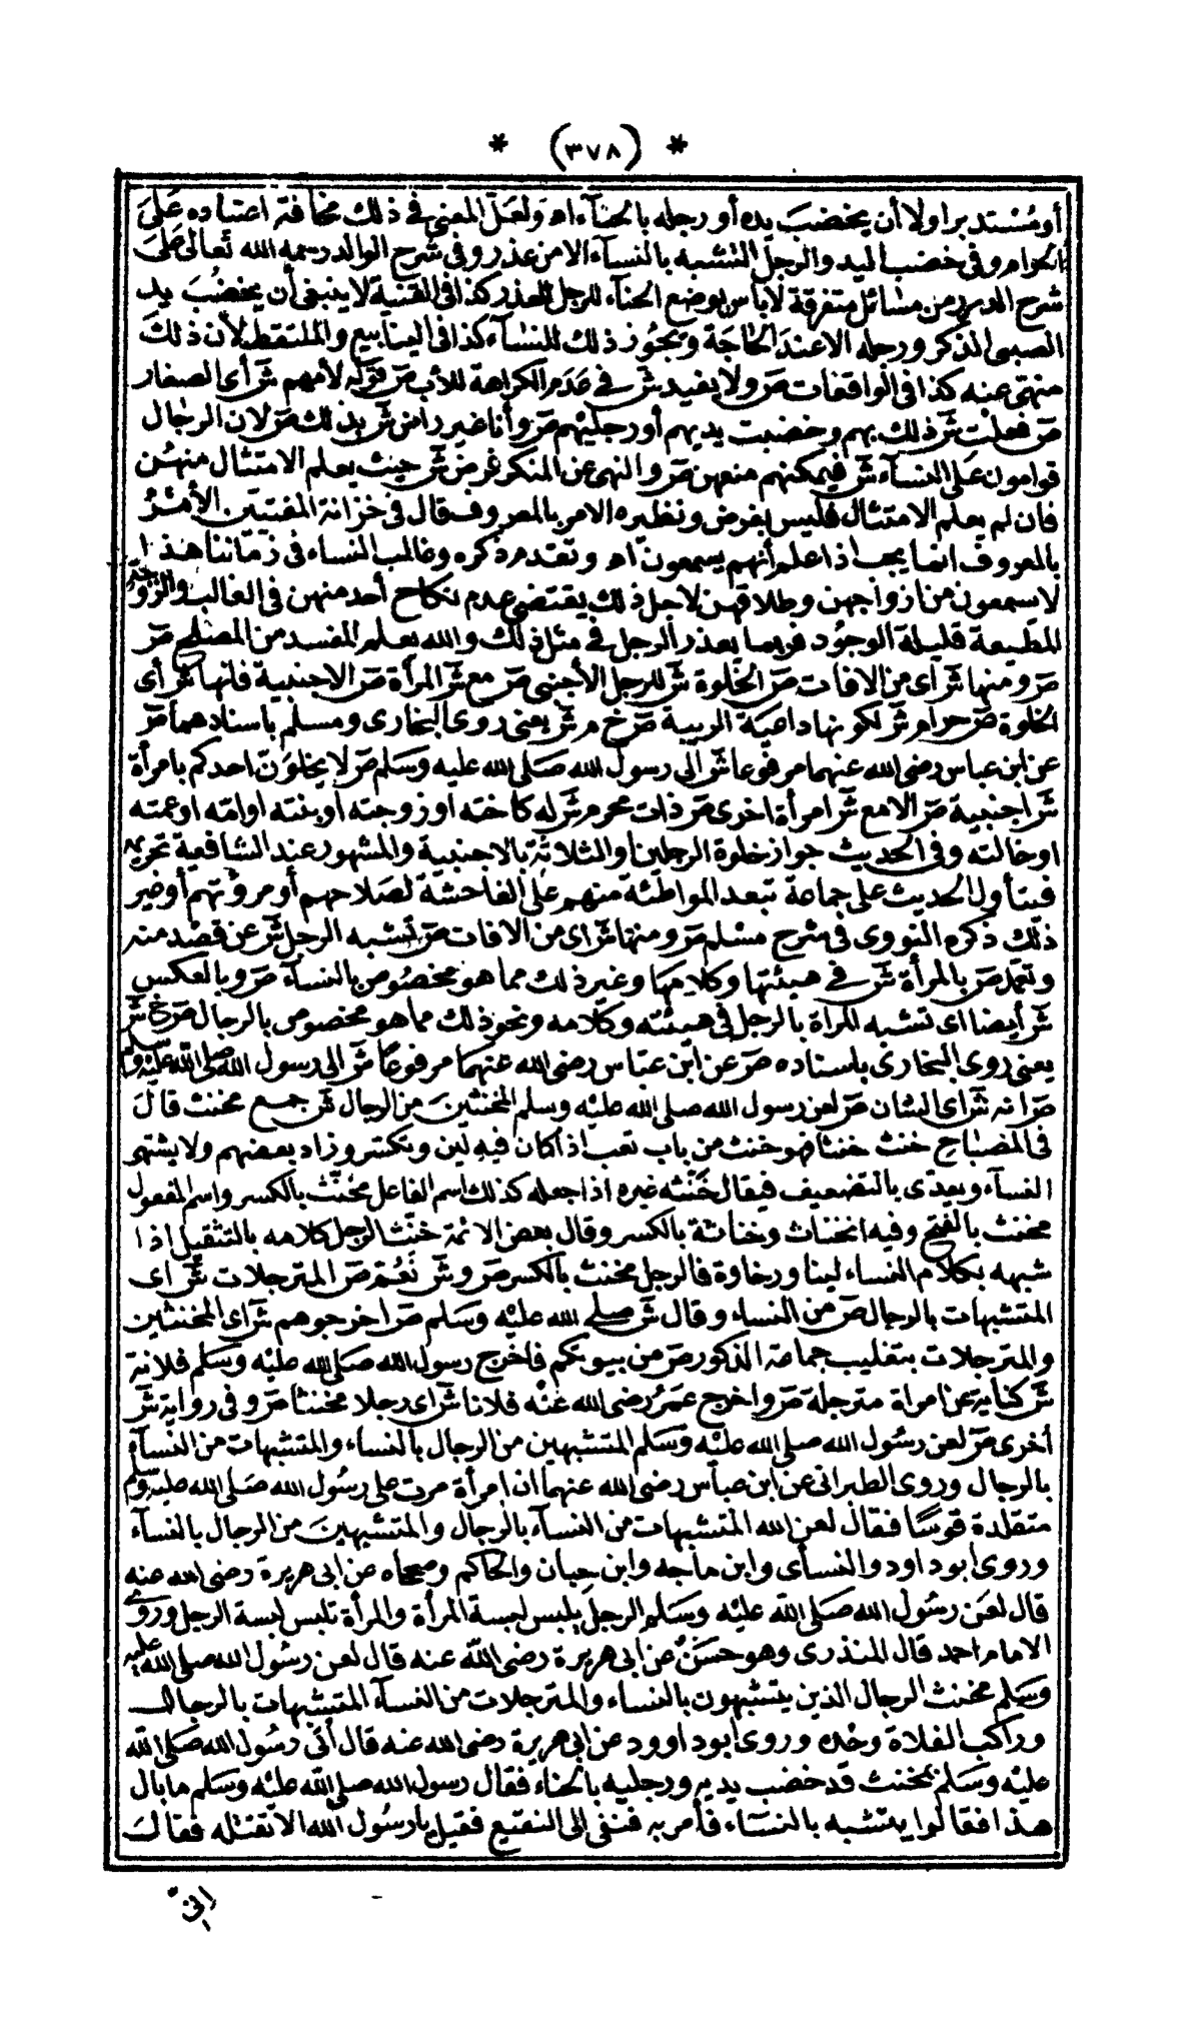 * (٣٧٨) *
أو مستدبرا ولا أن يخضب يده أو رجله بالحناء اه ولعل المعنى في ذلك مخافة اعتياده على
الحوام وفي خضب اليد والرجل التشبه بالنساء الا من عذر وفي شرح الوالد رحمه الله تعالى على
شرح الدرر من مسائل متفرقة لا بأس بوضع الحناء للرجل للعذر كذا في القنية لا ينبغي أن يخضب يد
الصبي الذكر ورجله الا عند الحاجة ويجوز ذلك للنساء كذا في الينابيع والملتقط لأن ذلك
منهى عنه كذا في الواقعات ص ولا يفيد ش في عدم الكراهة للأب ص قوله لأمهم ش أي الصغار
ص فعلت ش ذلك بهم وخضبت يديهم أو رجليهم ص وأنا غير راض ش بذلك ص لان الرجال
قوامون على النساء ش فيمكنهم منعهن ص والنهى عن المنكر فرض ش حيث يعلم الامتثال منهن
فان لم يعلم الامتثال فليس بفرض ونظيره الامر بالمعروف قال في خزانة المفتين الأمر
بالمعروف انما يجب اذا علم أنهم يسمعون اه وتقدم ذكره وغالب النساء في زماننا هذا
لا يسمعون من ازواجهن وطلاقهن لاجل ذلك يقتضى عدم نكاح أحد منهن في الغالب والزوجة
المطيعة قليلة الوجود فربما يعذر الرجل في مثل ذلك والله يعلم المفسد من المصلح ص
ص ومنها ش أي من الافات ص الخلوة ش للرجل الأجنبي ص مع ش المرأة ص الاجنبية فانها ش أي
الخلوة ص حرام ش لكونها داعية الريبة ص خ م ش يعنى روى البخارى ومسلم باسنادهما ص
عن ابن عباس رضى الله عنهما مرفوعا ش الى رسول الله صلى الله عليه وسلم ص لا يخلون احدكم بامرأة
ش اجنبية ص الا مع ش امرأة اخرى ص ذات محرم ش له كاخته او زوجته أو بنته او امته او عمته
او خالته وفي الحديث جواز خلوة الرجلين أو الثلاثة بالاجنبية والمشهور عند الشافعية تحريمه
فيتأول الحديث على جماعة تبعد المواطئة منهم على الفاحشة لصلاحهم أو مروءتهم أو غير
ذلك ذكره النووى في شرح مسلم ص ومنها ش أي من الافات ص تشبه الرجل ش عن قصد منه
وتعمد ص بالمرأة ش في هيئتها وكلامها وغير ذلك مما هو مخصوص بالنساء ص وبالعكس
ش أيضا اى تشبه المرأة بالرجل في هيئته وكلامه ونحو ذلك مما هو مخصوص بالرجال ص خ ش
يعنى روى البخارى باسناده ص عن ابن عباس رضى الله عنهما مرفوعا ش الى رسول الله صلى الله عليه وسلم
ص انه ش أي الشان ص لعن رسول الله صلى الله عليه وسلم المخنثين من الرجال ش جمع مخنث قال
في المصباح خنث خنثا فهو خنث من باب تعب اذا كان فيه لين وتكسر وزاد بعضهم ولا يشتهى
النساء ويعدى بالتضعيف فيقال خنثه غيره اذا جعله كذلك اسم الفاعل مخنث بالكسر واسم المفعول
مخنث بالفتح وفيه انخناث وخناثة بالكسر وقال بعض الائمة خنث الرجل كلامه بالتثقيل اذا
شبهه بكلام النساء لينا ورخاوة فالرجل مخنث بالكسر ص و ش نعم ص المترجلات ش أى
المتشبهات بالرجال ص من النساء وقال ش صلى الله عليه وسلم ص اخرجوهم ش أي المخنثين
والمترجلات بتغليب جماعة الذكور ص من بيوتكم فاخرج رسول الله صلى الله عليه وسلم فلانة
ش كناية عن امرأة مترجلة ص واخرج عمر رضى الله عنه فلانا ش أي رجلا مخنثا ص وفى رواية ش
أخرى ص لعن رسول الله صلى الله عليه وسلم المتشبهين من الرجال بالنساء والمتشبهات من النساء
بالرجال وروى الطبرانى عن ابن عباس رضى الله عنهما ان امرأة مرت على رسول الله صلى الله عليه وسلم
متقلدة قوسا فقال لعن الله المتشبهات من النساء بالرجال والمتشبهين من الرجال بالنساء
وروى ابو داود والنسأى وابن ماجه وابن حبان والحاكم وصححاه عن ابى هريرة رضى الله عنه
قال لعن رسول الله صلى الله عليه وسلم الرجل يلبس لبسة المرأة والمرأة تلبس لبسة الرجل وروى
الامام احمد قال المنذرى وهو حسن عن ابى هريرة رضى الله عنه قال لعن رسول الله صلى الله عليه
وسلم مخنث الرجال الذين يتشبهون بالنساء والمترجلات من النساء المتشبهات بالرجال
وراكب الفلاة وحده وروى ابو داوود عن ابى هريرة رضى الله عنه قال أتى رسول الله صلى الله
عليه وسلم بمخنث قد خضب يديه ورجليه بالحناء فقال رسول الله صلى الله عليه وسلم ما بال
هذا فقالوا يتشبه بالنساء فأمر به فنفى الى النقيع فقيل يا رسول الله الا تقتله فقال
انى